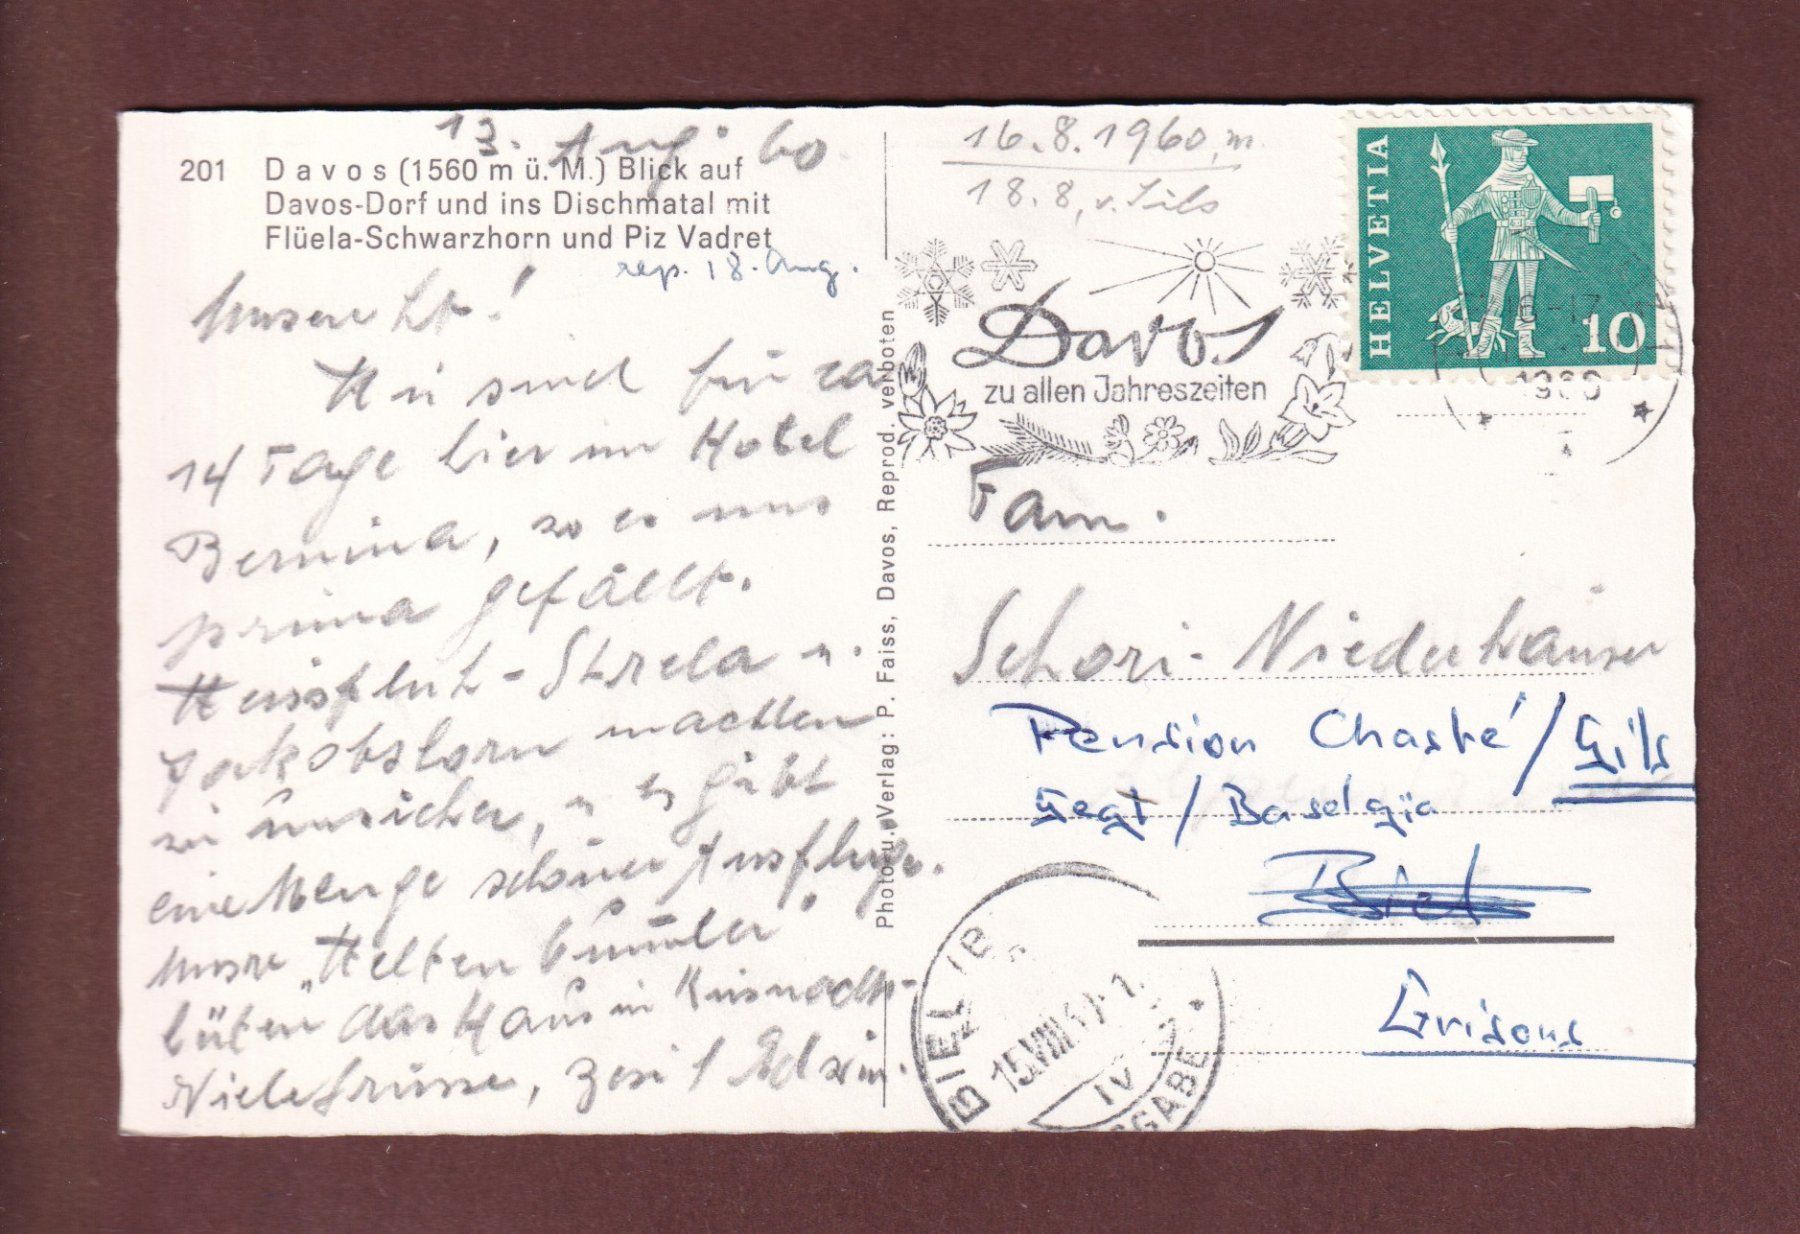 13. Aug. 60
201 Davos (1560 m ü. M.) Blick auf
Davos-Dorf und ins Dischmatal mit
Flüela-Schwarzhorn und Piz Vadret
rep. 18. Aug.
Unsere Lb!
Wir sind für ca
14 Tage hier im Hotel
Bernina, wo es uns
prima gefällt.
Weissfluh-Strela u.
Jakobshorn machten
wir unsicher, u es gibt
eine Menge schöner Ausflüge.
Unsre "Weltenbummler"
hüten das Haus in Küsnacht-
Viele Grüsse, Edwin.
Photo u. Verlag: P. Faiss, Davos, Reprod. verboten
16.8.1960, m.
18.8, v. Sils
Davos
zu allen Jahreszeiten
HELVETIA
10
16-17
1960
Fam.
Schori-Niederhäuser
Pension Chasté / Sils
Segl / Baselgia
Biel
Grisons
BIEL
15.VIII.60
IV